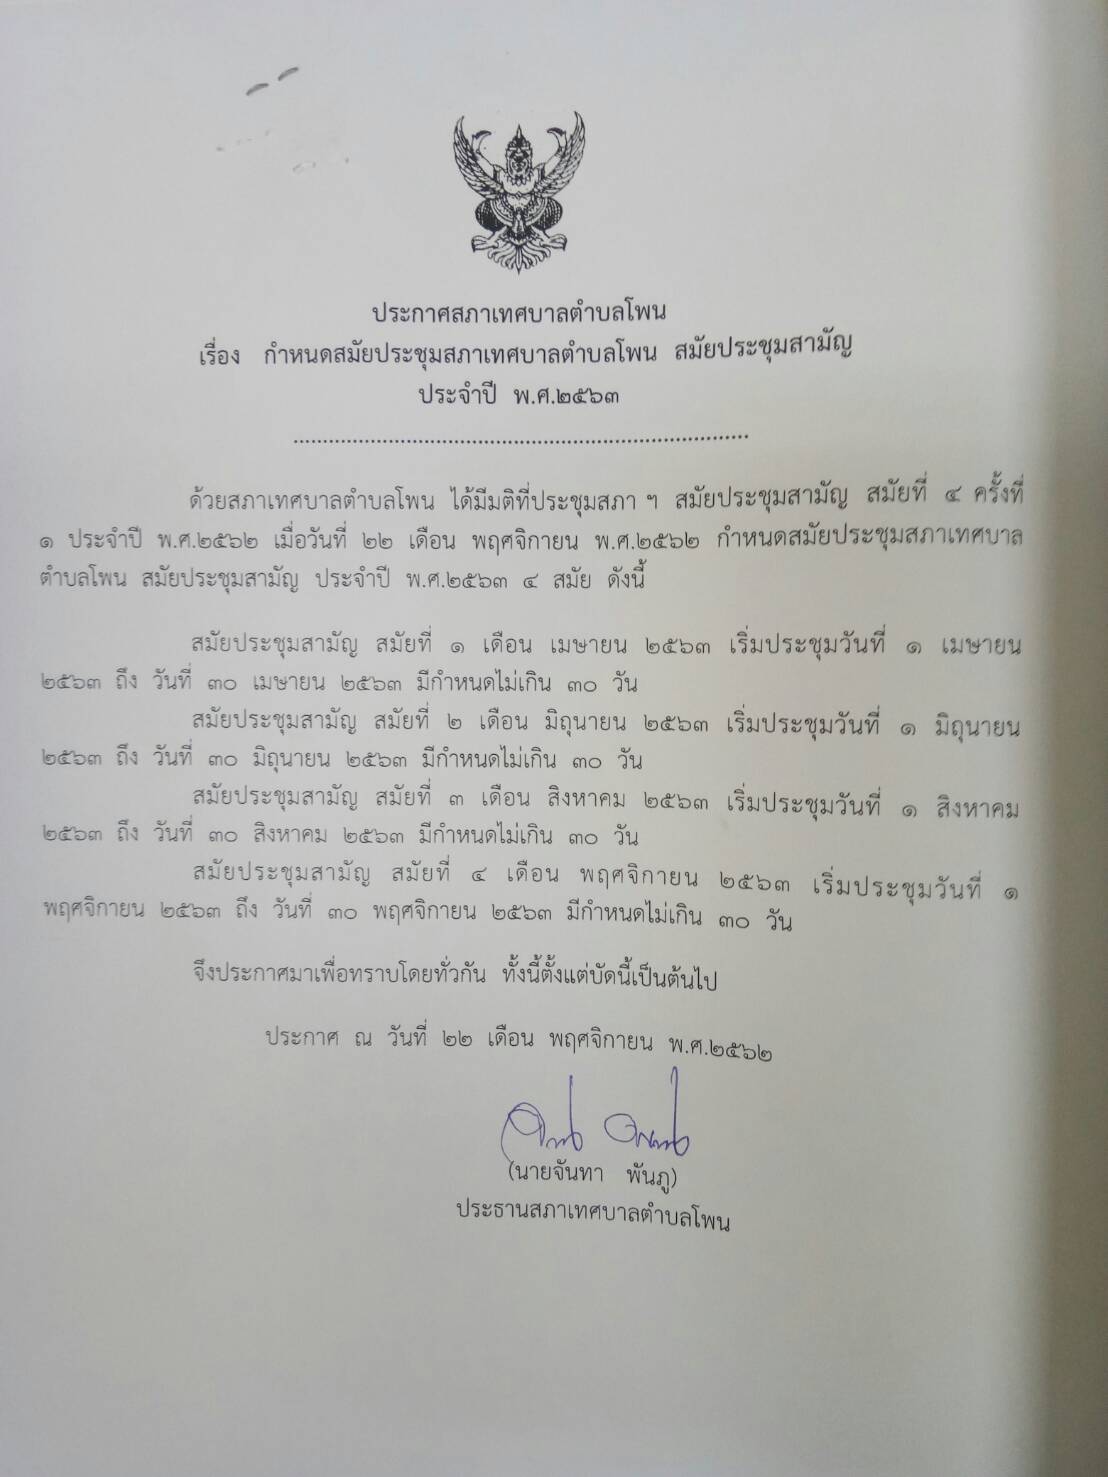 ประกาศสภาเทศบาลตำบลโพน
เรื่อง กำหนดสมัยประชุมสภาเทศบาลตำบลโพน สมัยประชุมสามัญ
ประจำปี พ.ศ.๒๕๖๓
ด้วยสภาเทศบาลตำบลโพน ได้มีมติที่ประชุมสภา ฯ สมัยประชุมสามัญ สมัยที่ ๔ ครั้งที่
๑ ประจำปี พ.ศ.๒๕๖๒ เมื่อวันที่ ๒๒ เดือน พฤศจิกายน พ.ศ.๒๕๖๒ กำหนดสมัยประชุมสภาเทศบาล
ตำบลโพน สมัยประชุมสามัญ ประจำปี พ.ศ.๒๕๖๓ ๔ สมัย ดังนี้
สมัยประชุมสามัญ สมัยที่ ๑ เดือน เมษายน ๒๕๖๓ เริ่มประชุมวันที่ ๑ เมษายน
๒๕๖๓ ถึง วันที่ ๓๐ เมษายน ๒๕๖๓ มีกำหนดไม่เกิน ๓๐ วัน
สมัยประชุมสามัญ สมัยที่ ๒ เดือน มิถุนายน ๒๕๖๓ เริ่มประชุมวันที่ ๑ มิถุนายน
๒๕๖๓ ถึง วันที่ ๓๐ มิถุนายน ๒๕๖๓ มีกำหนดไม่เกิน ๓๐ วัน
สมัยประชุมสามัญ สมัยที่ ๓ เดือน สิงหาคม ๒๕๖๓ เริ่มประชุมวันที่ ๑ สิงหาคม
๒๕๖๓ ถึง วันที่ ๓๐ สิงหาคม ๒๕๖๓ มีกำหนดไม่เกิน ๓๐ วัน
สมัยประชุมสามัญ สมัยที่ ๔ เดือน พฤศจิกายน ๒๕๖๓ เริ่มประชุมวันที่ ๑
พฤศจิกายน ๒๕๖๓ ถึง วันที่ ๓๐ พฤศจิกายน ๒๕๖๓ มีกำหนดไม่เกิน ๓๐ วัน
จึงประกาศมาเพื่อทราบโดยทั่วกัน ทั้งนี้ตั้งแต่บัดนี้เป็นต้นไป
ประกาศ ณ วันที่ ๒๒ เดือน พฤศจิกายน พ.ศ.๒๕๖๒
(นายจันทา พันภู)
ประธานสภาเทศบาลตำบลโพน